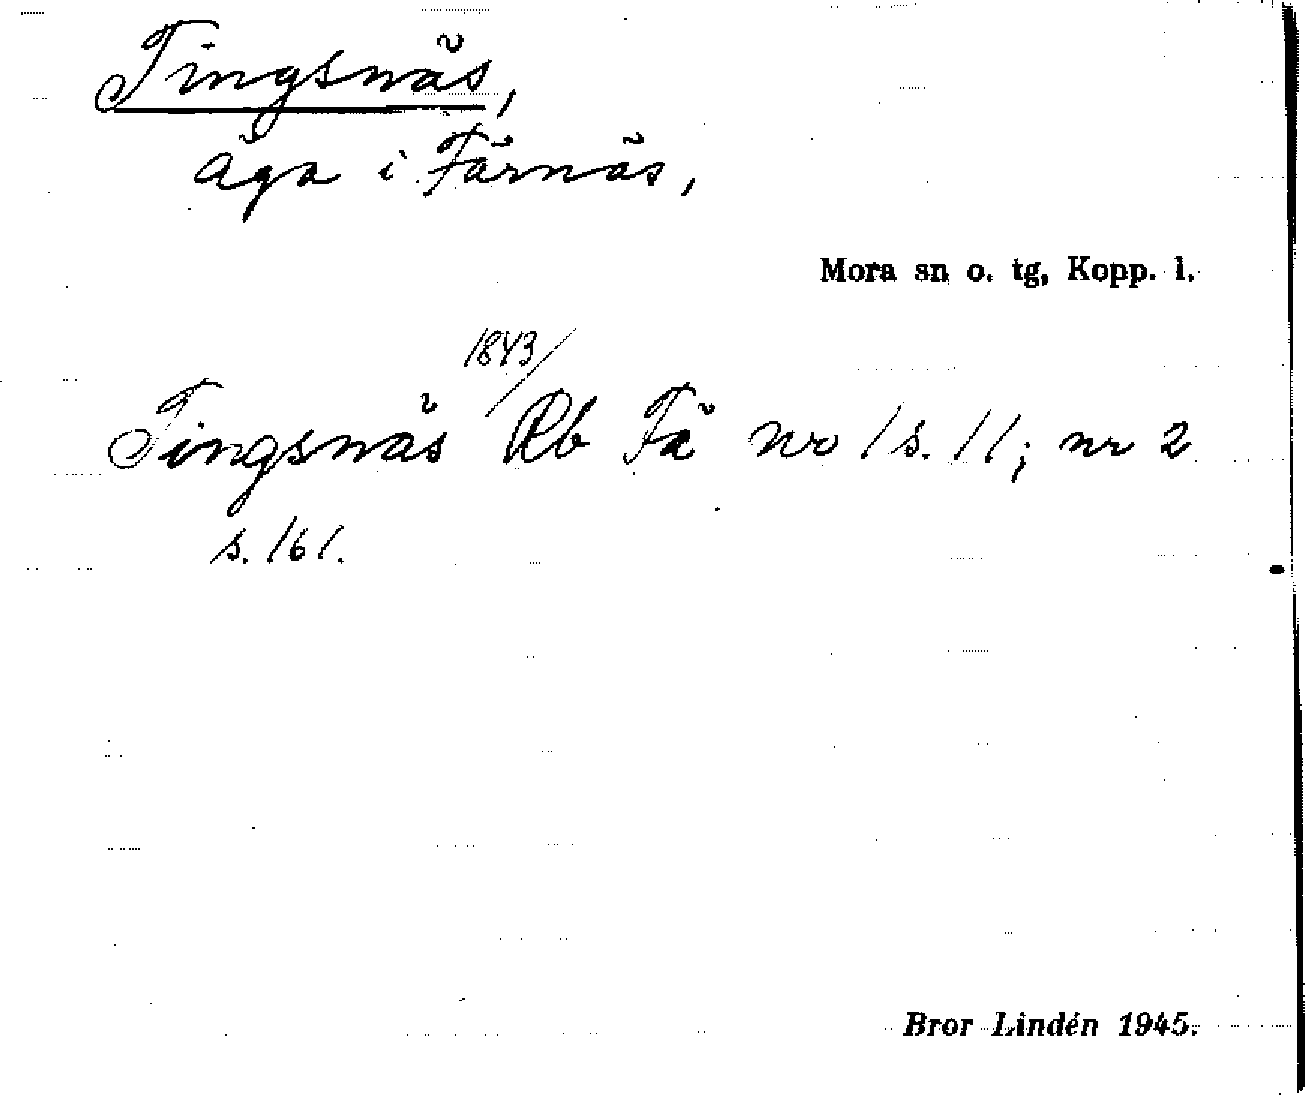 Tingsnäs,
äga i Färnäs,
Mora sn o. tg, Kopp. l.
1843/
Tingsnäs Rb Fä nr 1 s. 11; nr 2
s. 161.
Bror Lindén 1945.